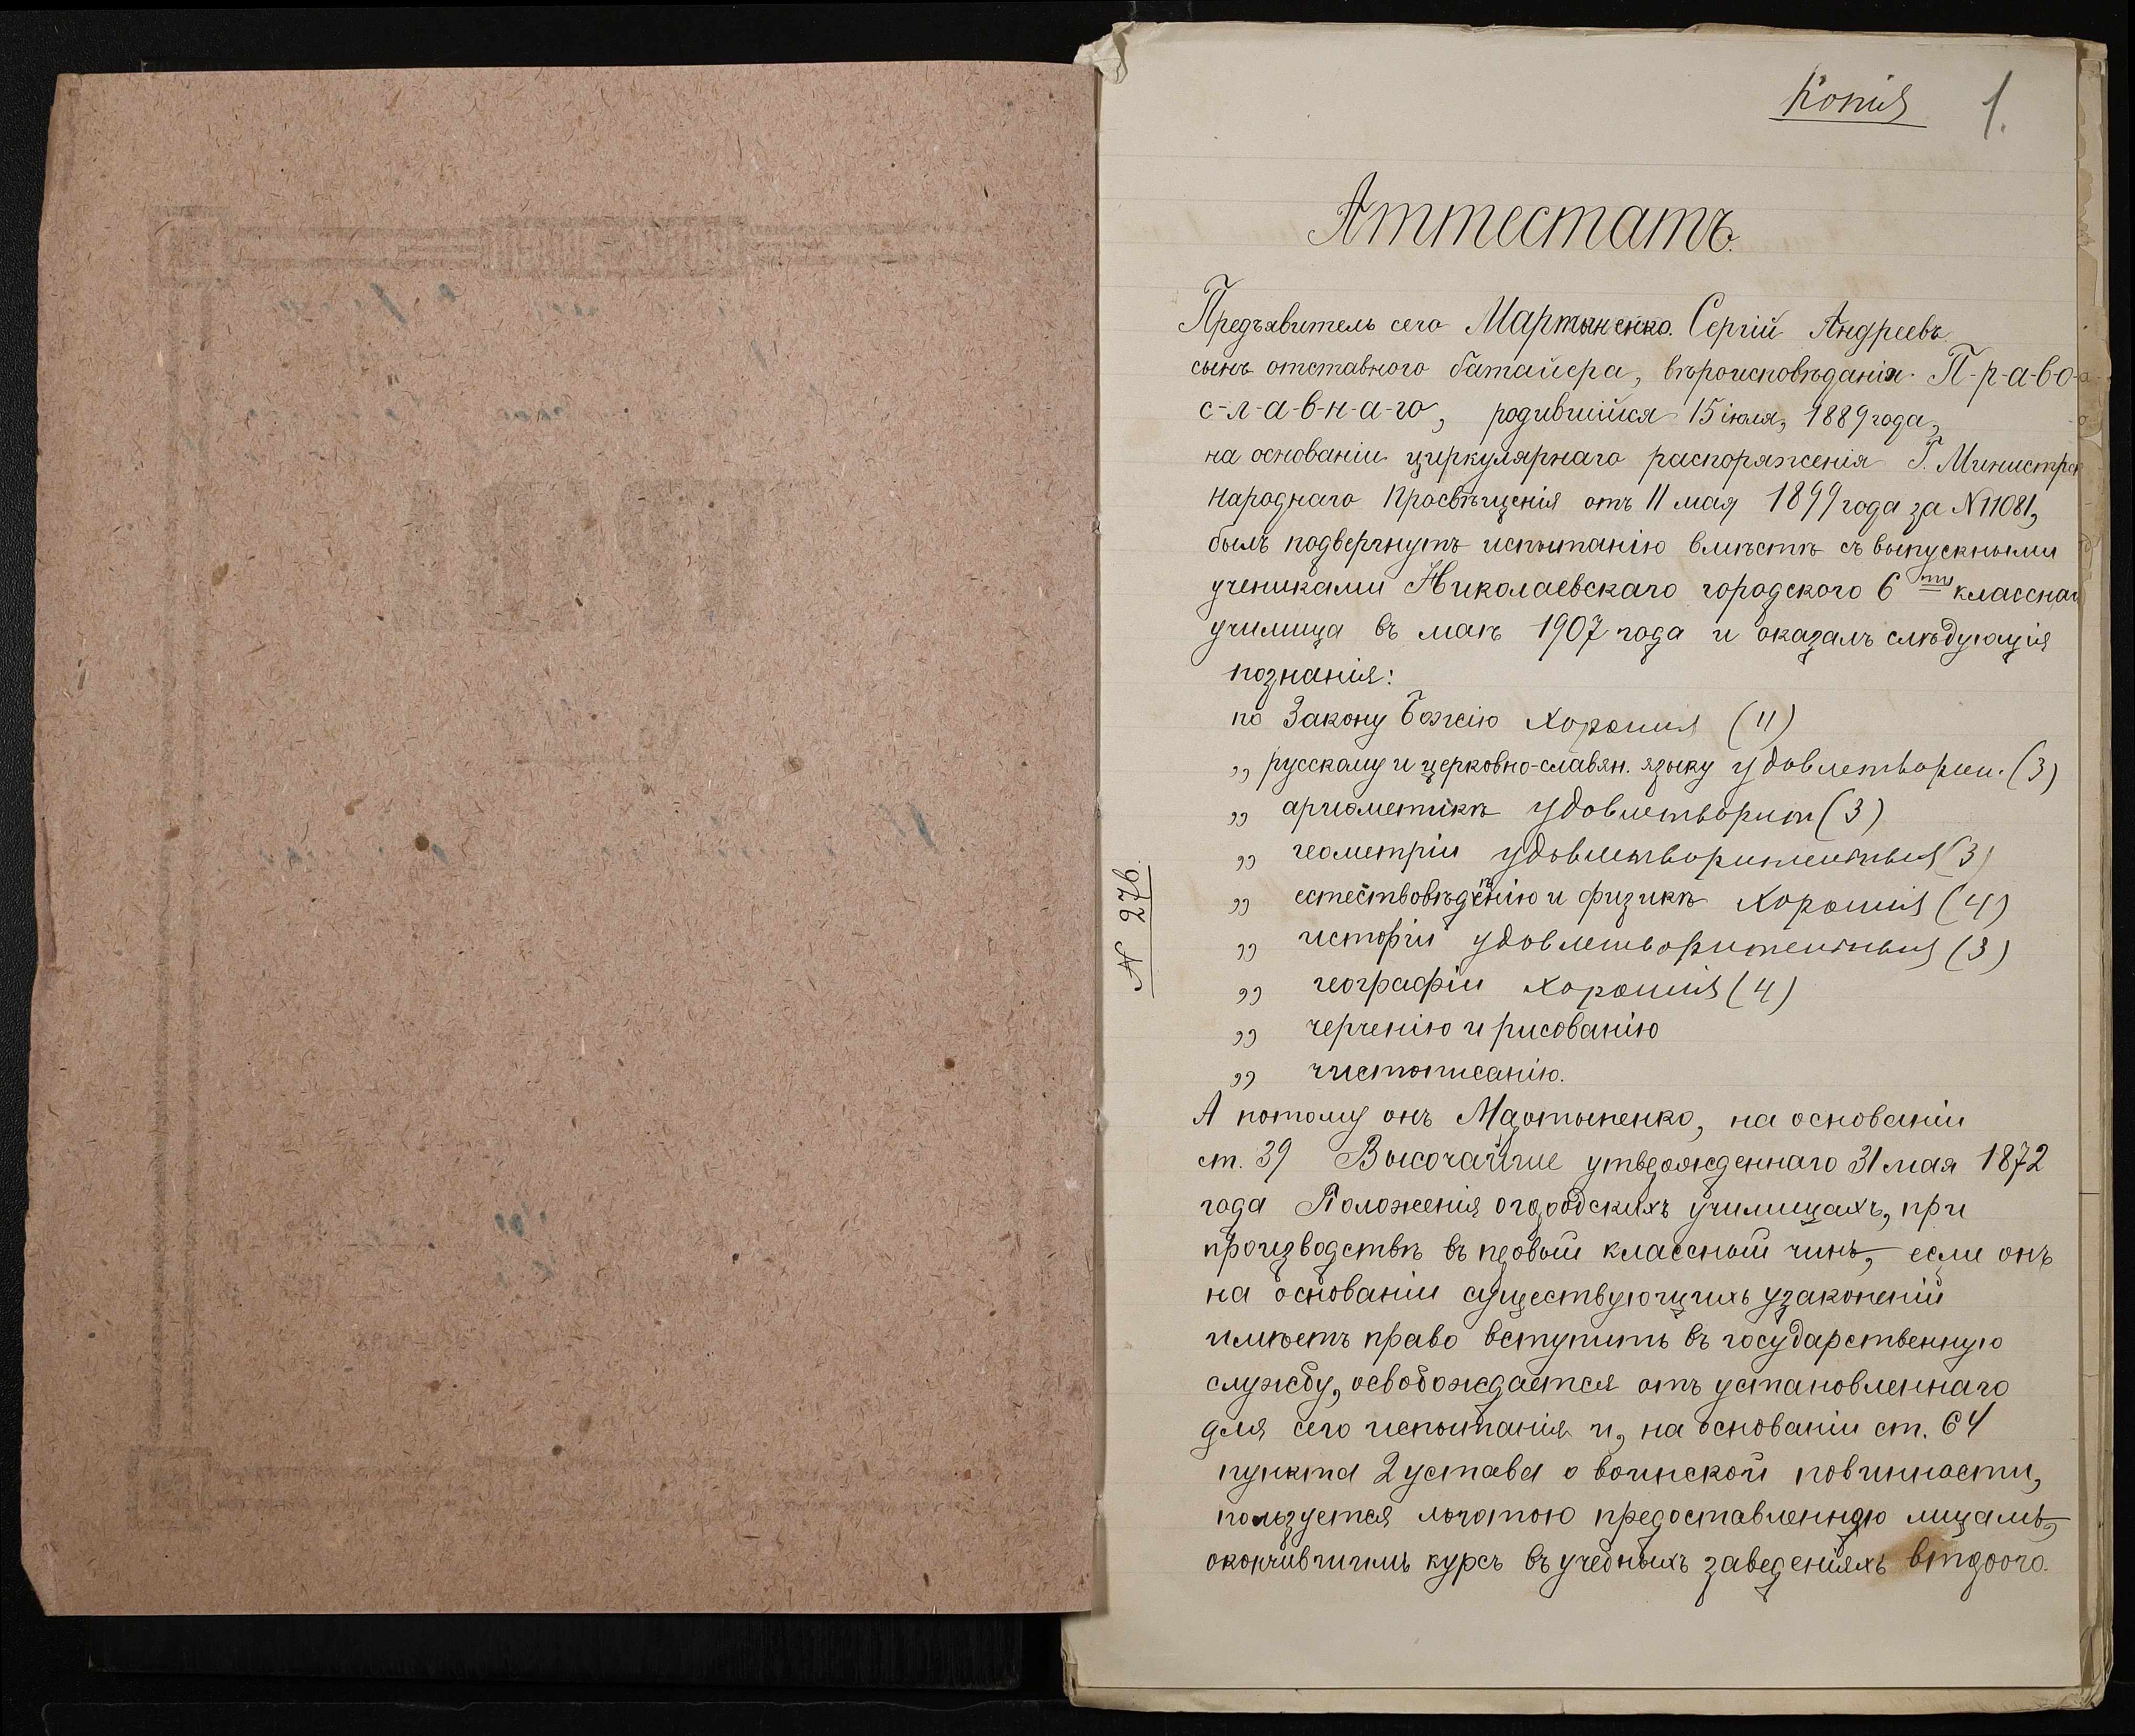 Копія 1.
Аттестатъ.
Предъявитель сего Мартыненко. Сергій Андреевъ
сынъ отставного баталера, вѣроисповѣданія П-р-а-в-о-
с-л-а-в-н-а-го, родившійся 15 іюля, 1889 года,
на основаніи циркулярнаго распоряженія Г. Министра
Народнаго Просвѣщенія отъ 11 мая 1899 года за N 11081,
былъ подвергнутъ испытанію вмѣстѣ съ выпускными
учениками Николаевскаго городского 6ти классна
училища въ маѣ 1907 года и оказалъ слѣдующія
познанія:
по Закону Божію хорошія (4)
„ русскому и церковно-славян. языку удовлетворит. (3)
„ ариѳметикѣ удовлетворит (3)
„ геометріи удовлетворительныя (3)
„ естествовѣдѣнію и физикѣ хорошія (4)
„ исторіи удовлетворительныя (3)
„ географіи хорошія (4)
„ черченію и рисованію
„ чистописанію.
N 276.
А потому онъ Мартыненко, на основаніи
ст. 39 Высочайше утвержденнаго 31 мая 1872
года Положенія о городскихъ училищахъ, при
производствѣ въ первый классный чинъ, если онъ
на основаніи существующихъ узаконеній
имѣетъ право вступить въ государственную
службу, освобождается отъ установленнаго
для сего испытанія и, на основаніи ст. 64
пункта 2 устава о воинской повинности,
пользуется льготою предоставленною лицамъ,
окончившимъ курсъ въ учебныхъ заведеніяхъ второго.